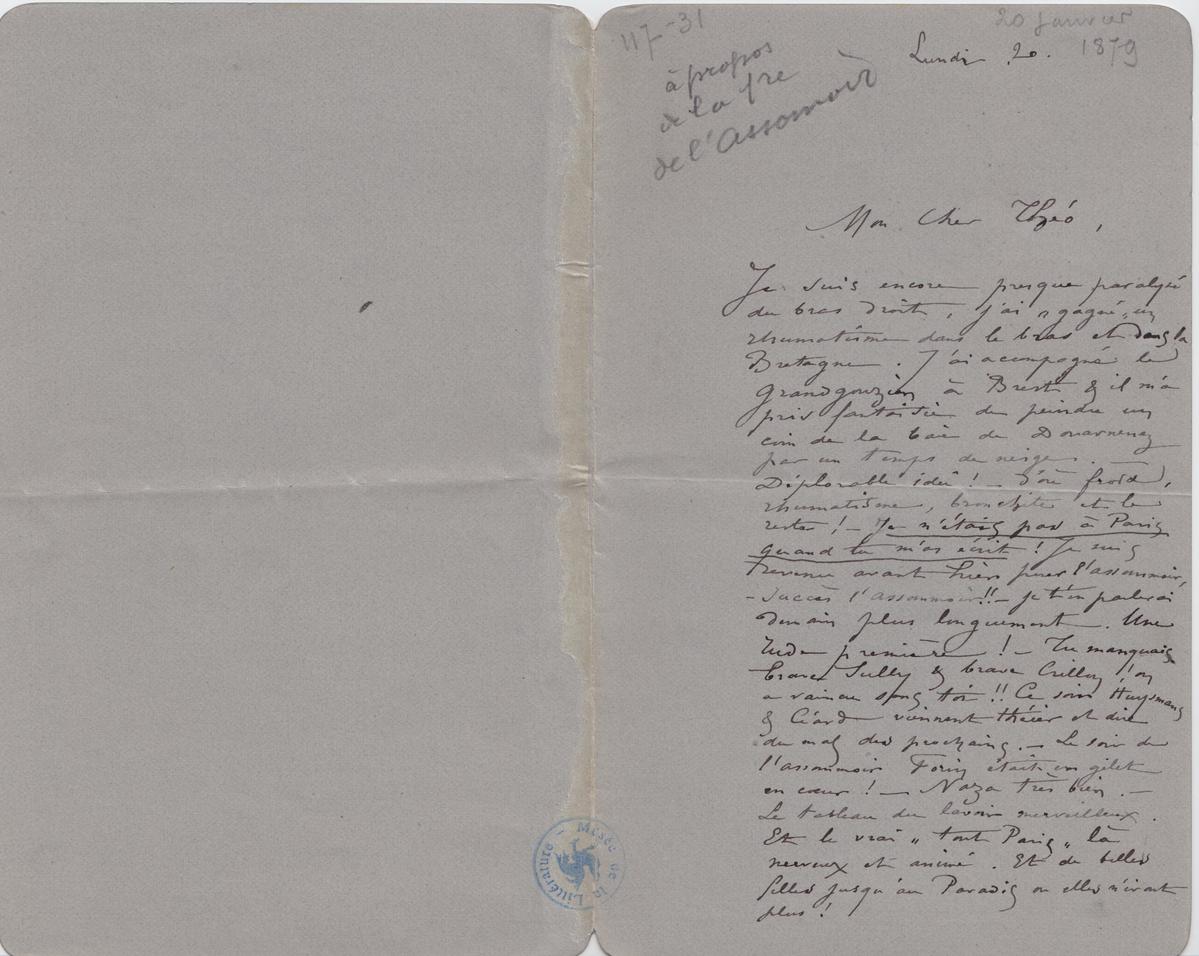 117-31
20 janvier
1879
à propos
de la 1re
de l'Assommoir
Lundi 20.
Mon Cher Théo,
Je suis encore presque paralysé
du bras droit, j'ai "gagné" un
rhumatisme dans le bras et dans la
Bretagne. J'ai accompagné le
Grandgouzien à Brest & il m'a
pris fantaisie de peindre un
coin de la baie de Douarnenez
par un temps de neige.
Déplorable idée ! – D'où froid,
rhumatisme, bronchite et le
reste ! – Je n'étais pas à Paris
quand tu m'as écrit ! Je suis
revenu avant hier pour l'assommoir,
– Succès l'assommoir !! – je t'en parlerai
demain plus longuement. Une
rude première ! – Tu manquais
brave Sully & brave Crillon ! on
a vaincu sans toi !! Ce soir Huysmans
& Céard viennent théier et dire
du mal des prochains. – Le soir de
l'assommoir Forin était en gilet
en cœur ! – Naza très bien. –
Le tableau du lavoir merveilleux.
Et le vrai "tout Paris" là
nerveux et animé. Et de belles
filles jusqu'au Paradis où elles n'iront
plus !
Musée de la Littérature